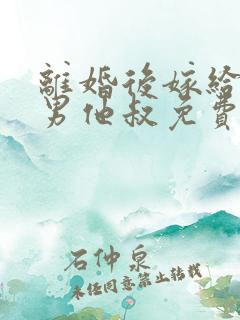 離婚後嫁給
男他叔免費
石仲泉
未任同意禁止转载